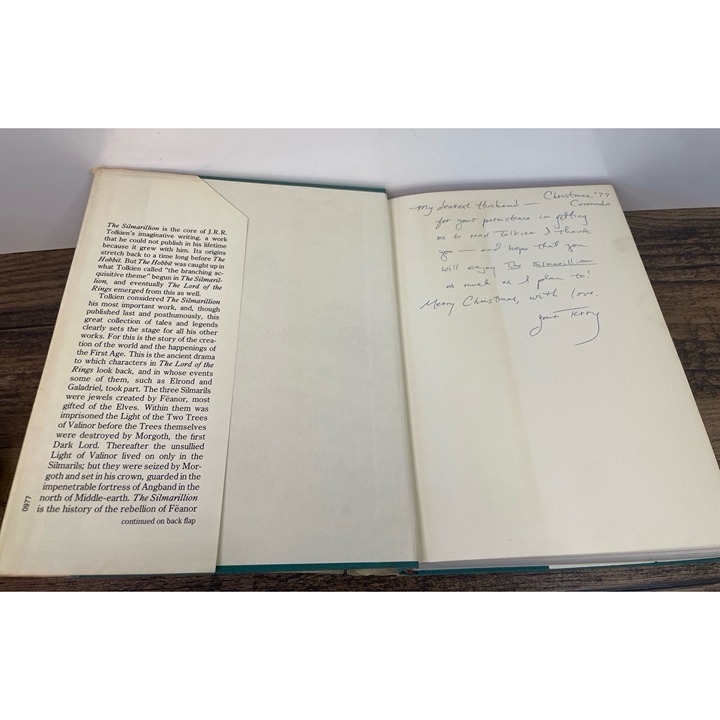 The Silmarillion is the core of J.R.R.
Tolkien's imaginative writing, a work
that he could not publish in his lifetime
because it grew with him. Its origins
stretch back to a time long before The
Hobbit. But The Hobbit was caught up in
what Tolkien called "the branching ac-
quisitive theme" begun in The Silmaril-
lion, and eventually The Lord of the
Rings emerged from this as well.
Tolkien considered The Silmarillion
his most important work, and, though
published last and posthumously, this
great collection of tales and legends
clearly sets the stage for all his other
works. For this is the story of the crea-
tion of the world and the happenings of
the First Age. This is the ancient drama
to which characters in The Lord of the
Rings look back, and in whose events
some of them, such as Elrond and
Galadriel, took part. The three Silmarils
were jewels created by Fëanor, most
gifted of the Elves. Within them was
imprisoned the Light of the Two Trees
of Valinor before the Trees themselves
were destroyed by Morgoth, the first
Dark Lord. Thereafter the unsullied
Light of Valinor lived on only in the
Silmarils; but they were seized by Mor-
goth and set in his crown, guarded in the
impenetrable fortress of Angband in the
north of Middle-earth. The Silmarillion
is the history of the rebellion of Fëanor
continued on back flap
0977
Christmas '77
Coronado
My dearest Husband —
for your persistence in getting
me to read Tolkien I thank
you — and hope that you
will enjoy The Silmarillion
as much as I plan to!
Merry Christmas, with love,
your Terry